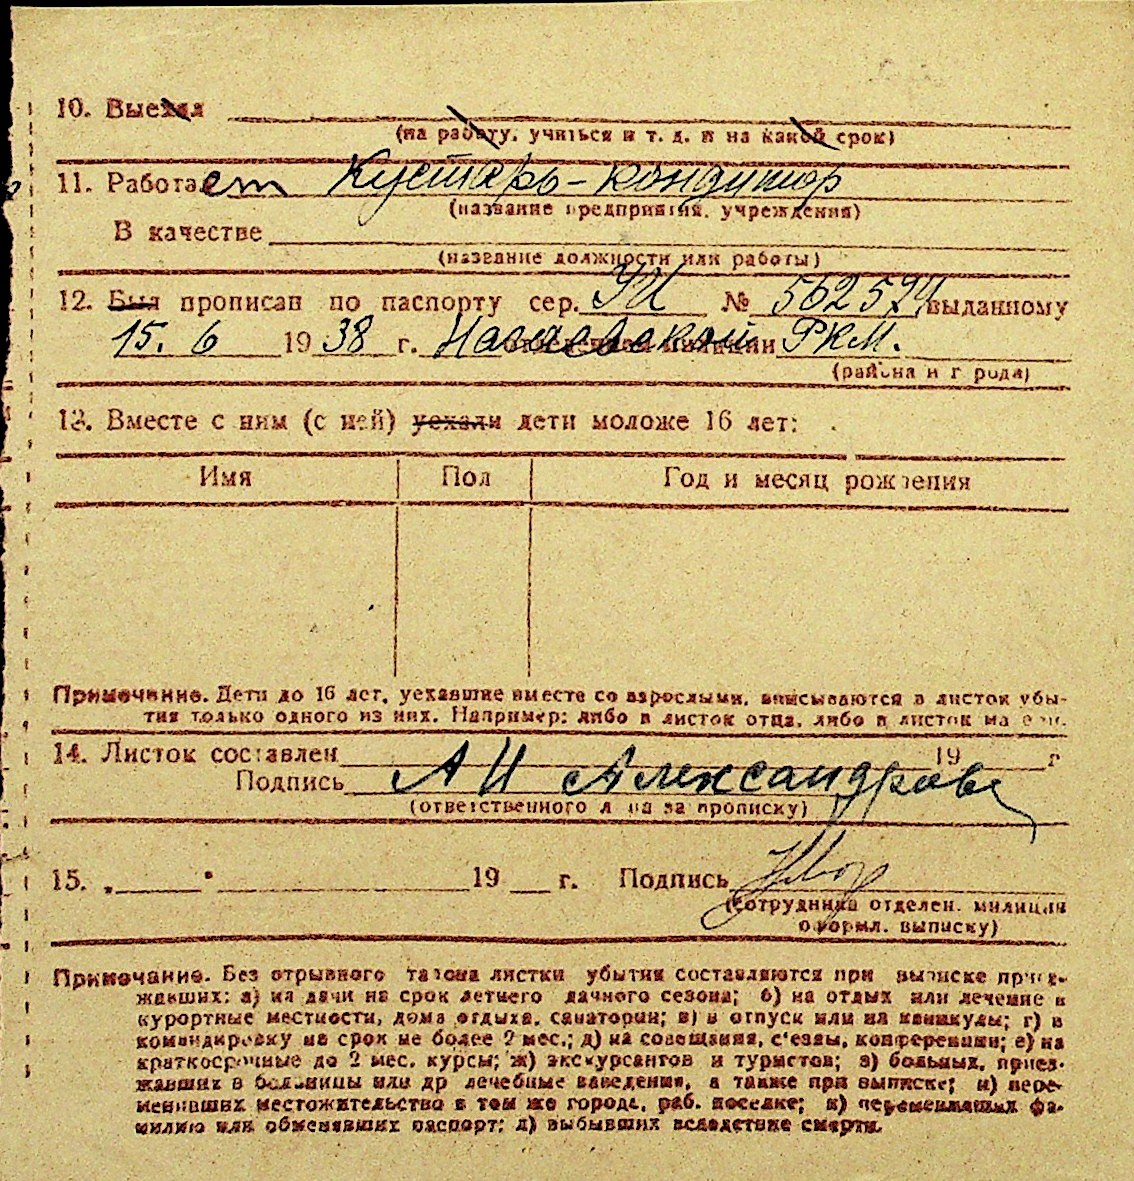 10. Выехал
(на работу, учиться и т. д. и на какой срок)
11. Работает Кустарь-кондитор
(название предприятия, учреждения)
В качестве
(название должности или работы)
12. Был прописан по паспорту сер. УИ № 562579 выданному
15. 6 1938 г. РКМ.
(района и города)
13. Вместе с ним (с ней) уехали дети моложе 16 лет:
Имя Пол Год и месяц рождения
Примечание. Дети до 16 лет, уехавшие вместе со взрослыми, вписываются в листок убы-
тия только одного из них. Например: либо в листок отца, либо в листок матери.
14. Листок составлен 19 г
Подпись А И Александрова
(ответственного лица за прописку)
15. „ " 19 г. Подпись
(сотрудника отделен. милиции
оформл. выписку)
Примечание. Без отрывного талона листки убытия составляются при выписке приез-
жавших: а) на дачи на срок летнего дачного сезона; б) на отдых или лечение в
курортные местности, дома отдыха, санатории; в) в отпуск или на каникулы; г) в
командировку на срок не более 2 мес.; д) на совещания, с'езды, конференции; е) на
краткосрочные до 2 мес. курсы; ж) экскурсантов и туристов; з) больных, приез-
жавших в больницы или др лечебные заведения, а также при выписке; и) пере-
менивших местожительство в том же городе, раб. поселке; к) переменивших фа-
милию или обменявших паспорт; л) выбывших вследствие смерти.